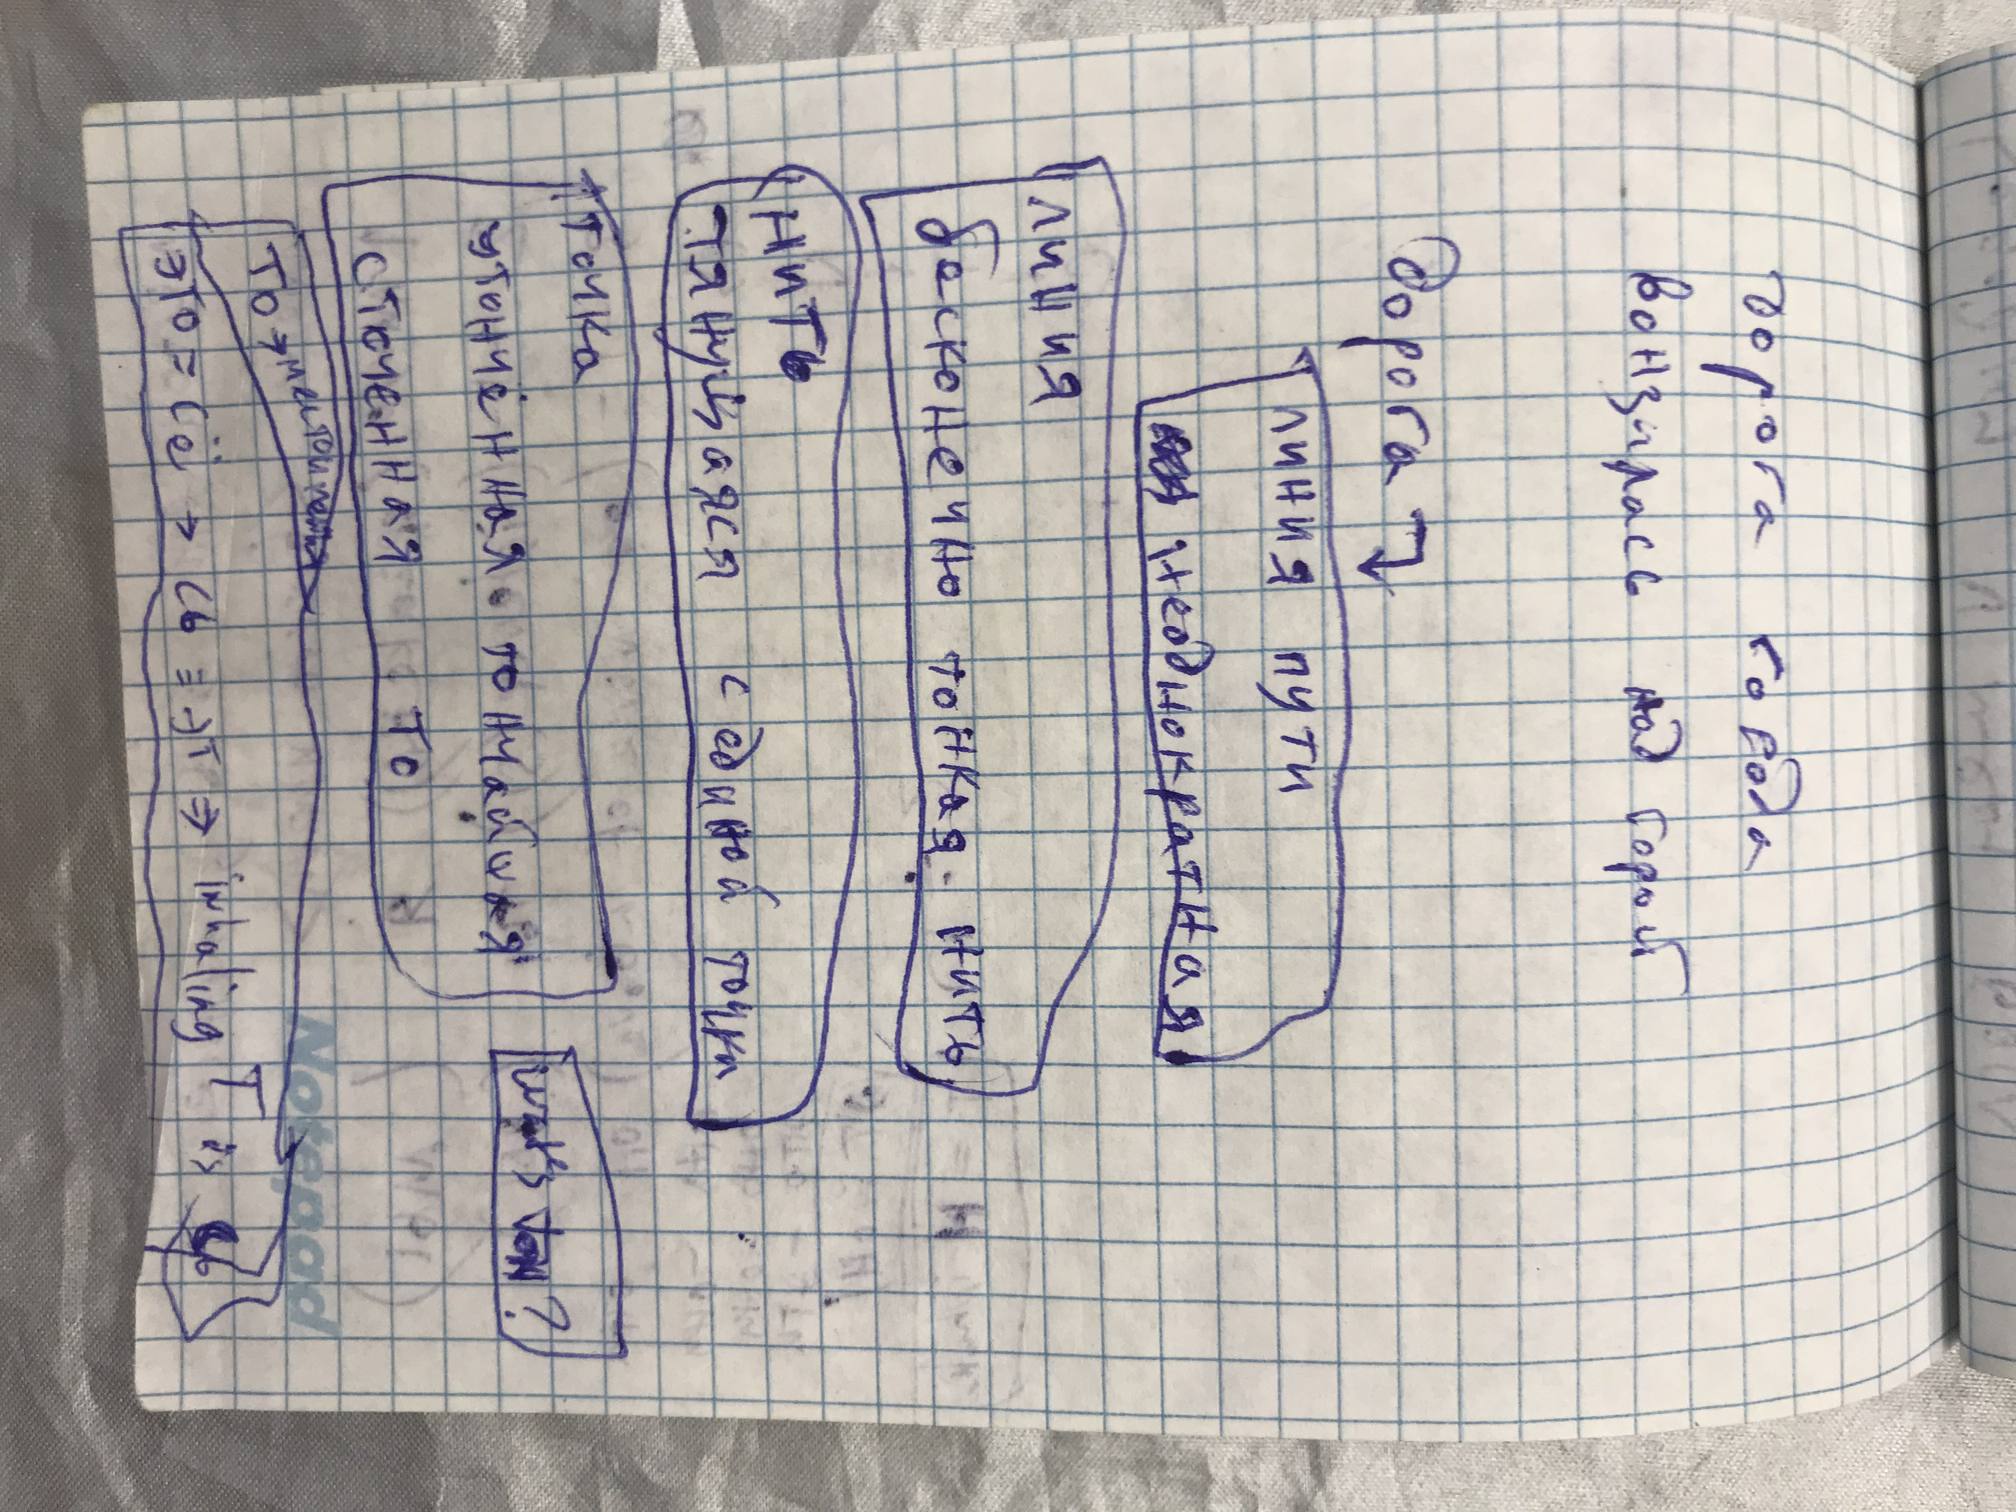 дорога города
вонзилась над горой
дорога
линия пути
неоднократная
линия
басконечно тонкая нить
нить
тянущаяся с единой точки
точка
утончённая тончайшая
сточенная то
what's ton?
то →
это = сё → сь = эт → inhaling T is сь
Notepad